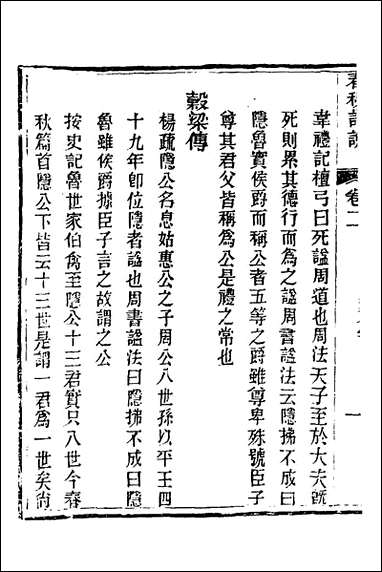 春秋 卷二 一
韋禮記檀弓曰死謚周道也周法天子至於大夫旣
死則累其德行而爲之謚周書謚法云隱拂不成曰
隱魯實侯爵而稱公者五等之爵雖尊卑殊號臣子
尊其君父皆稱爲公是禮之常也
穀梁傳
楊疏隱公名息姑惠公之子周公八世孫以平王四
十九年卽位隱者謚也周書謚法曰隱拂不成曰隱
魯雖侯爵據臣子言之故謂之公
按史記魯世家伯禽至隱公十三君實只八世今春
秋篇首隱公下皆云十三世是謂一君爲一世矣尙